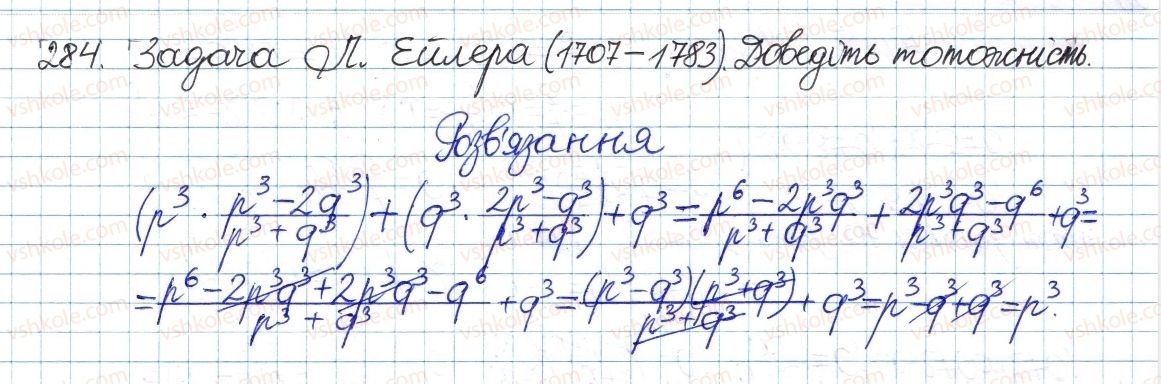 284. Задача Л. Ейлера (1707-1783). Доведіть тотожність.
Розв'язання
(p³ · (p³ - 2q³)/(p³ + q³)) + (q³ · (2p³ - q³)/(p³ + q³)) + q³ = (p⁶ - 2p³q³)/(p³ + q³) + (2p³q³ - q⁶)/(p³ + q³) + q³ =
= (p⁶ - 2p³q³ + 2p³q³ - q⁶)/(p³ + q³) + q³ = (p³ - q³)(p³ + q³)/(p³ + q³) + q³ = p³ - q³ + q³ = p³.